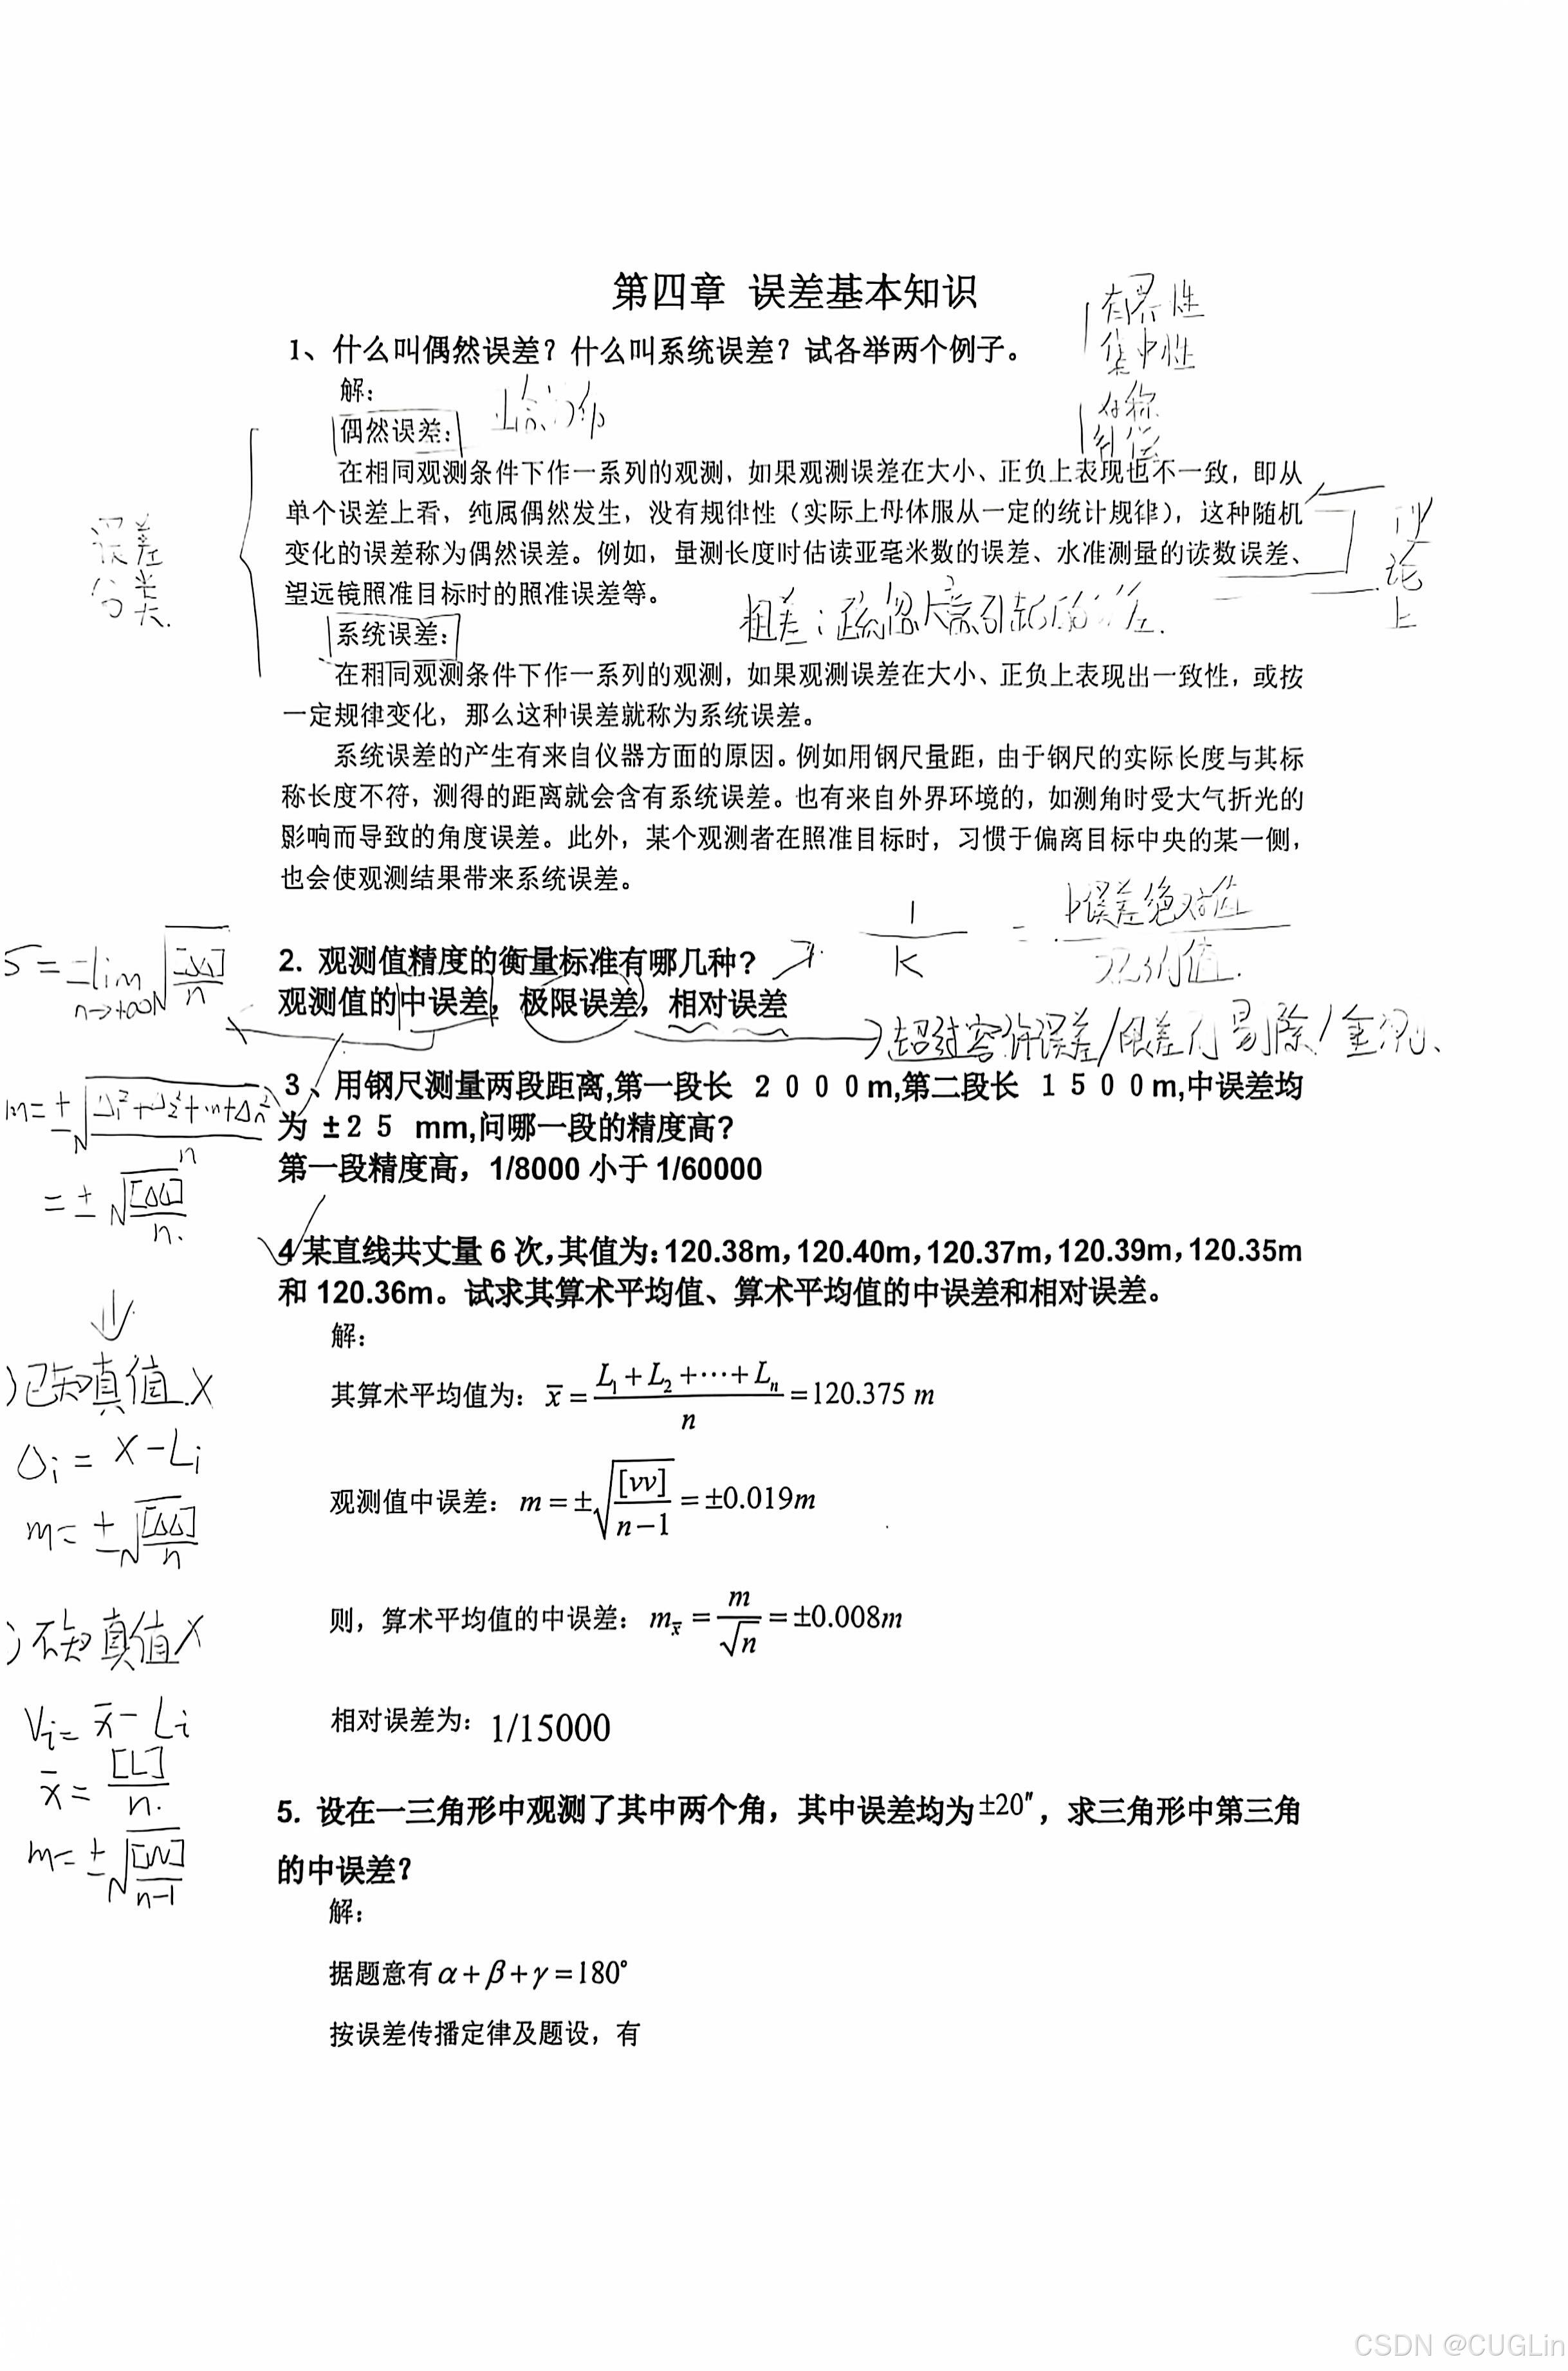 第四章 误差基本知识
有界性
集中性
对称
1、什么叫偶然误差？什么叫系统误差？试各举两个例子。
解：
偶然误差：
在相同观测条件下作一系列的观测，如果观测误差在大小、正负上表现也不一致，即从
单个误差上看，纯属偶然发生，没有规律性（实际上母体服从一定的统计规律），这种随机
变化的误差称为偶然误差。例如，量测长度时估读亚毫米数的误差、水准测量的读数误差、
望远镜照准目标时的照准误差等。
误差
分类
论
上
粗差：疏忽大意引起的
系统误差：
在相同观测条件下作一系列的观测，如果观测误差在大小、正负上表现出一致性，或按
一定规律变化，那么这种误差就称为系统误差。
系统误差的产生有来自仪器方面的原因。例如用钢尺量距，由于钢尺的实际长度与其标
称长度不符，测得的距离就会含有系统误差。也有来自外界环境的，如测角时受大气折光的
影响而导致的角度误差。此外，某个观测者在照准目标时，习惯于偏离目标中央的某一侧，
也会使观测结果带来系统误差。
2. 观测值精度的衡量标准有哪几种？
1/K = 误差绝对值/值.
观测值的中误差，极限误差，相对误差
超过容许误差/限差
3、用钢尺测量两段距离,第一段长 2000m,第二段长 1500m,中误差均
为 ±25 mm,问哪一段的精度高？
第一段精度高，1/8000 小于 1/60000
m=±√(Δ₁²+Δ₂²+…+Δn²)/n
=±√[ΔΔ]/n.
4 某直线共丈量 6 次，其值为：120.38m，120.40m，120.37m，120.39m，120.35m
和 120.36m。试求其算术平均值、算术平均值的中误差和相对误差。
解：
其算术平均值为：x̄=(L₁+L₂+⋯+Lₙ)/n=120.375 m
观测值中误差：m=±√([vv]/(n−1))=±0.019m
则，算术平均值的中误差：m_x̄=m/√n=±0.008m
相对误差为：1/15000
)已知真值X
Δi=X-Li
m=±√[ΔΔ]/n
)不知真值X
Vi=x̄-Li
x̄=[L]/n.
m=±√[VV]/n-1
5. 设在一三角形中观测了其中两个角，其中误差均为±20″，求三角形中第三角
的中误差？
解：
据题意有α+β+γ=180°
按误差传播定律及题设，有
CSDN @CUGLin